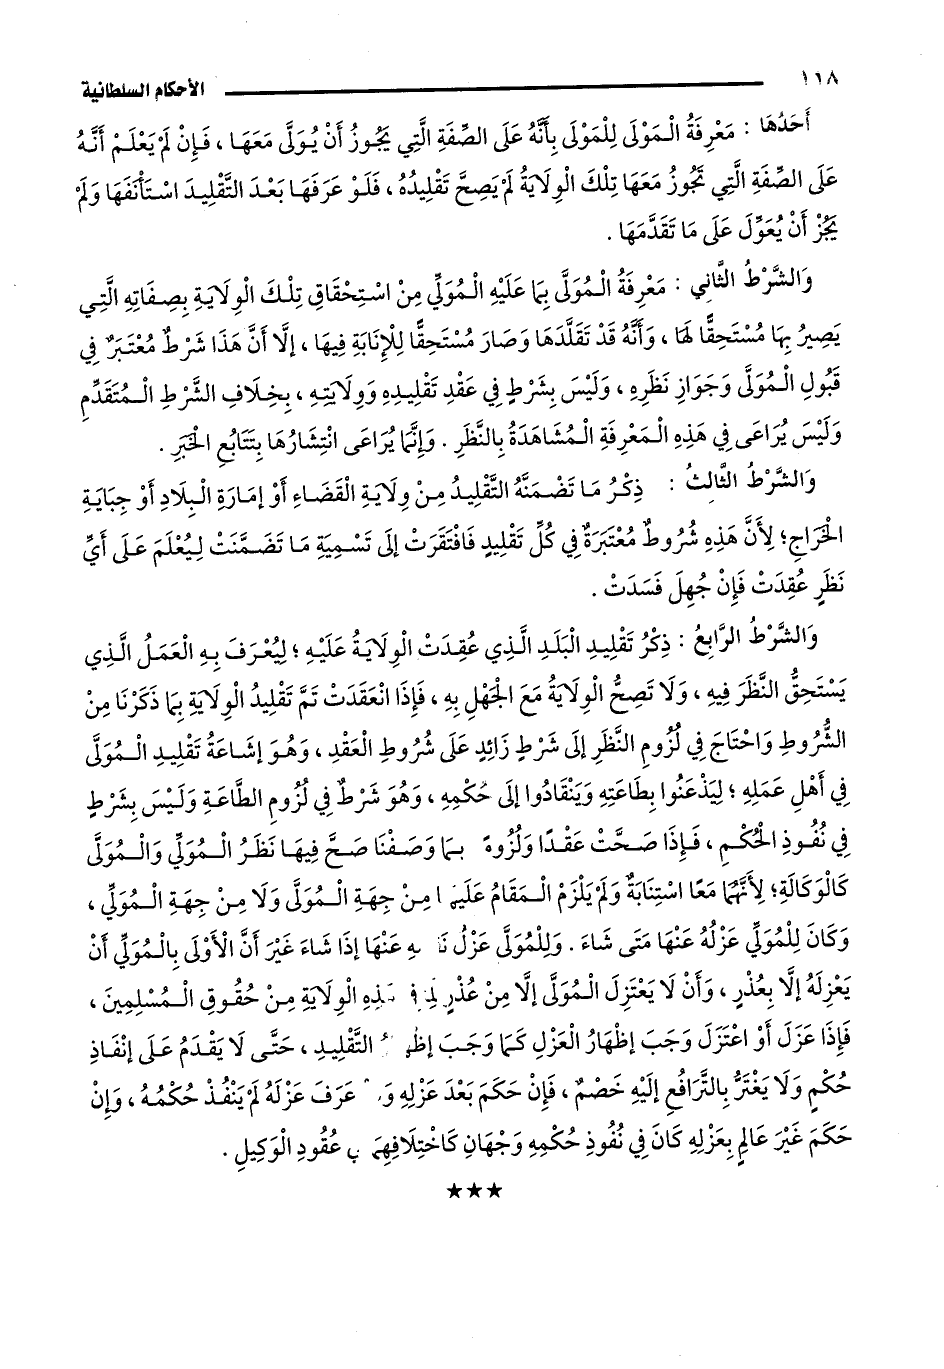 ١١٨ الأحكام السلطانية
أَحَدُهَا : مَعْرِفَةُ الْمَوْلَى لِلْمَوْلَى بِأَنَّهُ عَلَى الصِّفَةِ الَّتِي يَجُوزُ أَنْ يُوَلَّى مَعَهَا ، فَإِنْ لَمْ يَعْلَمْ أَنَّهُ
عَلَى الصِّفَةِ الَّتِي تَجُوزُ مَعَهَا تِلْكَ الْوِلَايَةُ لَمْ يَصِحَّ تَقْلِيدُهُ ، فَلَوْ عَرَفَهَا بَعْدَ التَّقْلِيدِ اسْتَأْنَفَهَا وَلَمْ
يَجُزْ أَنْ يُعَوِّلَ عَلَى مَا تَقَدَّمَهَا .
وَالشَّرْطُ الثَّانِي : مَعْرِفَةُ الْمُوَلَّى بِمَا عَلَيْهِ الْمُوَلِّي مِنْ اسْتِحْقَاقِ تِلْكَ الْوِلَايَةِ بِصِفَاتِهِ الَّتِي
يَصِيرُ بِهَا مُسْتَحِقًّا لَهَا ، وَأَنَّهُ قَدْ تَقَلَّدَهَا وَصَارَ مُسْتَحِقًّا لِلْإِنَابَةِ فِيهَا ، إلَّا أَنَّ هَذَا شَرْطٌ مُعْتَبَرٌ فِي
قَبُولِ الْمُوَلَّى وَجَوَازِ نَظَرِهِ ، وَلَيْسَ بِشَرْطٍ فِي عَقْدِ تَقْلِيدِهِ وَوِلَايَتِهِ ، بِخِلَافِ الشَّرْطِ الْمُتَقَدِّمِ
وَلَيْسَ يُرَاعَى فِي هَذِهِ الْمَعْرِفَةِ الْمُشَاهَدَةُ بِالنَّظَرِ . وَإِنَّمَا يُرَاعَى انْتِشَارُهَا بِتَتَابُعِ الْخَبَرِ .
وَالشَّرْطُ الثَّالِثُ : ذِكْرُ مَا تَضْمَنَهُ التَّقْلِيدُ مِنْ وِلَايَةِ الْقَضَاءِ أَوْ إمَارَةِ الْبِلَادِ أَوْ جِبَايَةِ
الْخَرَاجِ؛ لِأَنَّ هَذِهِ شُرُوطٌ مُعْتَبَرَةٌ فِي كُلِّ تَقْلِيدٍ فَافْتَقَرَتْ إلَى تَسْمِيَةِ مَا تَضَمَّنَتْ لِيُعْلَمَ عَلَى أَيِّ
نَظَرٍ عُقِدَتْ فَإِنْ جُهِلَ فَسَدَتْ .
وَالشَّرْطُ الرَّابِعُ : ذِكْرُ تَقْلِيدِ الْبَلَدِ الَّذِي عُقِدَتْ الْوِلَايَةُ عَلَيْهِ ؛ لِيُعْرَفَ بِهِ الْعَمَلُ الَّذِي
يَسْتَحِقُّ النَّظَرَ فِيهِ ، وَلَا تَصِحُّ الْوِلَايَةُ مَعَ الْجَهْلِ بِهِ ، فَإِذَا انْعَقَدَتْ تَمَّ تَقْلِيدُ الْوِلَايَةِ بِمَا ذَكَرْنَا مِنْ
الشُّرُوطِ وَاحْتَاجَ فِي لُزُومِ النَّظَرِ إلَى شَرْطٍ زَائِدٍ عَلَى شُرُوطِ الْعَقْدِ ، وَهُوَ إشَاعَةُ تَقْلِيدِ الْمُوَلَّى
فِي أَهْلِ عَمَلِهِ ؛ لِيَذْعَنُوا بِطَاعَتِهِ وَيَنْقَادُوا إلَى حُكْمِهِ ، وَهُوَ شَرْطٌ فِي لُزُومِ الطَّاعَةِ وَلَيْسَ بِشَرْطٍ
فِي نُفُوذِ الْحُكْمِ ، فَإِذَا صَحَّتْ عَقْدًا وَلُزُومً بِمَا وَصَفْنَا صَحَّ فِيهَا نَظَرُ الْمُوَلِّي وَالْمُوَلَّى
كَالْوَكَالَةِ؛ لِأَنَّهُمَا مَعًا اسْتِنَابَةٌ وَلَمْ يَلْزَمْ الْمَقَامُ عَلَيْهَا مِنْ جِهَةِ الْمُوَلَّى وَلَا مِنْ جِهَةِ الْمُوَلِّي ،
وَكَانَ لِلْمُوَلِّي عَزْلُهُ عَنْهَا مَتَى شَاءَ . وَلِلْمُوَلَّى عَزْلُ عَنْهَا إذَا شَاءَ غَيْرَ أَنَّ الْأَوْلَى بِالْمُوَلِّي أَنْ
يَعْزِلَهُ إلَّا بِعُذْرٍ ، وَأَنْ لَا يَعْتَزِلَ الْمُوَلَّى إلَّا مِنْ عُذْرٍ الْوِلَايَةِ مِنْ حُقُوقِ الْمُسْلِمِينَ ،
فَإِذَا عَزَلَ أَوْ اعْتَزَلَ وَجَبَ إظْهَارُ الْعَزْلِ كَمَا وَجَبَ التَّقْلِيدِ ، حَتَّى لَا يَقْدَمُ عَلَى إنْفَاذِ
حُكْمٍ وَلَا يَغْتَرُّ بِالتَّرَافُعِ إلَيْهِ خَصْمٌ ، فَإِنْ حَكَمَ بَعْدَ عَزْلِهِ عَرَفَ عَزْلَهُ لَمْ يَنْفُذْ حُكْمُهُ ، وَإِنْ
حَكَمَ غَيْرَ عَالِمٍ بِعَزْلِهِ كَانَ فِي نُفُوذِ حُكْمِهِ وَجْهَانِ كَاخْتِلَافِهِمَ عُقُودِ الْوَكِيلِ .
★★★